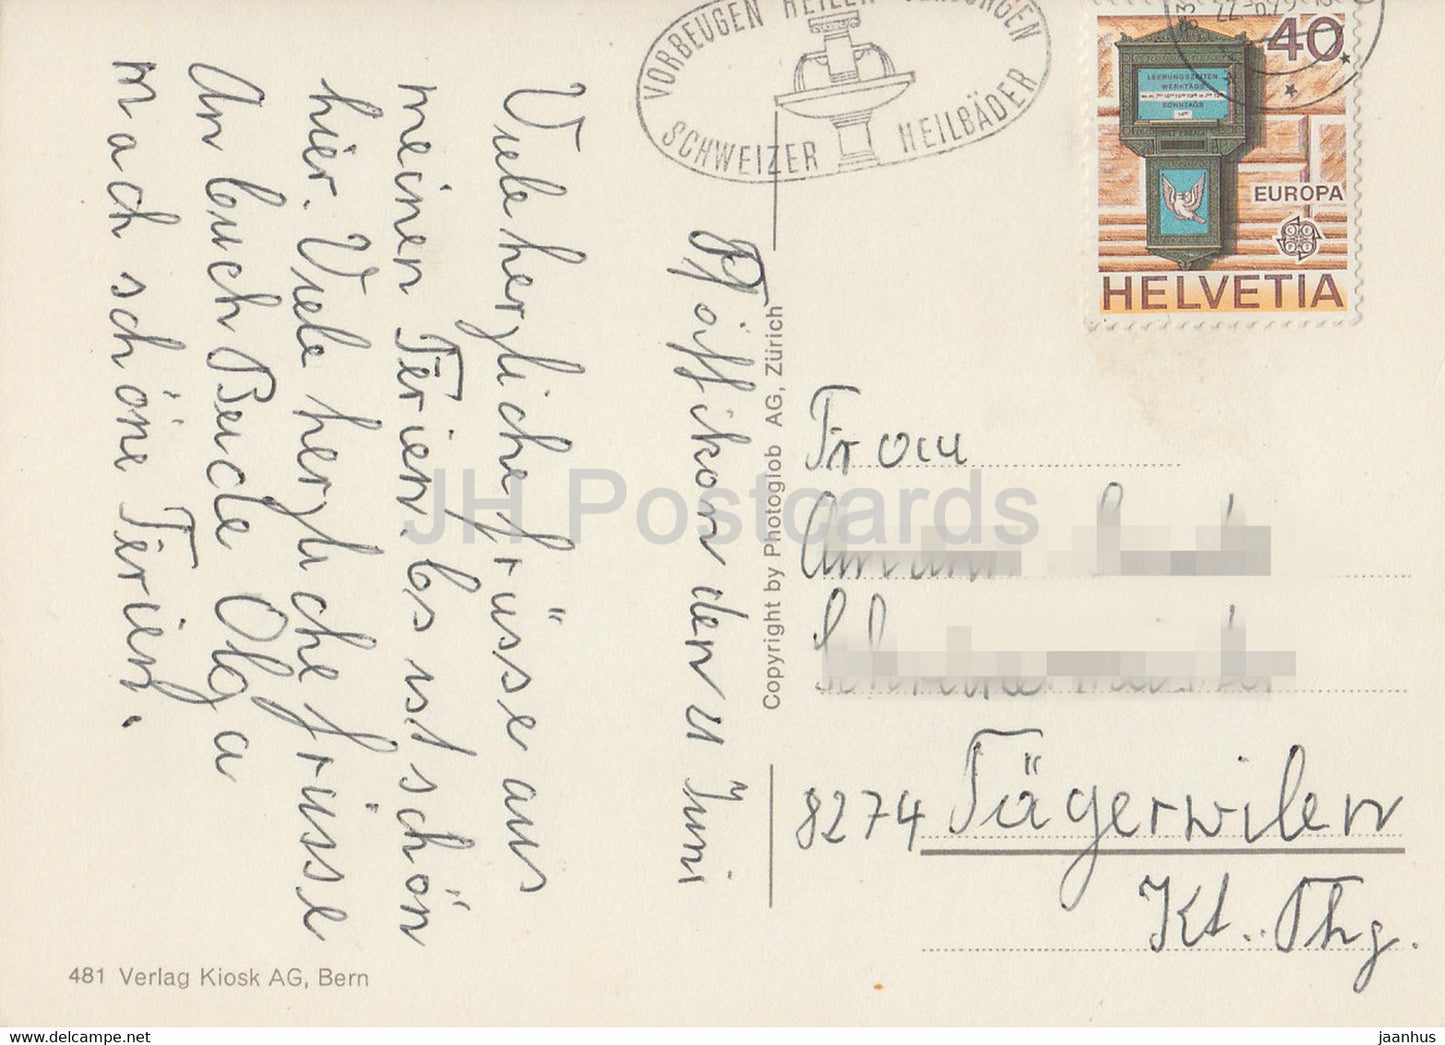 Pfäffikon den 11 Juni
Viele herzliche frusse aus
meinen Ferien. Es ist schön
hier. Viele herzliche frusse
An Euch Beide Olga
Mach schöne Ferien.
481 Verlag Kiosk AG, Bern
Copyright by Photoglob AG, Zürich
VORBEUGEN HEILEN
SCHWEIZER HEILBÄDER
22.-6.79
40
LEERUNGSZEITEN
WERKTAGS
SONNTAGS
EUROPA
HELVETIA
Frau
8274 Tägerwilen
Kt. Thg.
JH Postcards
www.jhpostcards.com
jaanhus